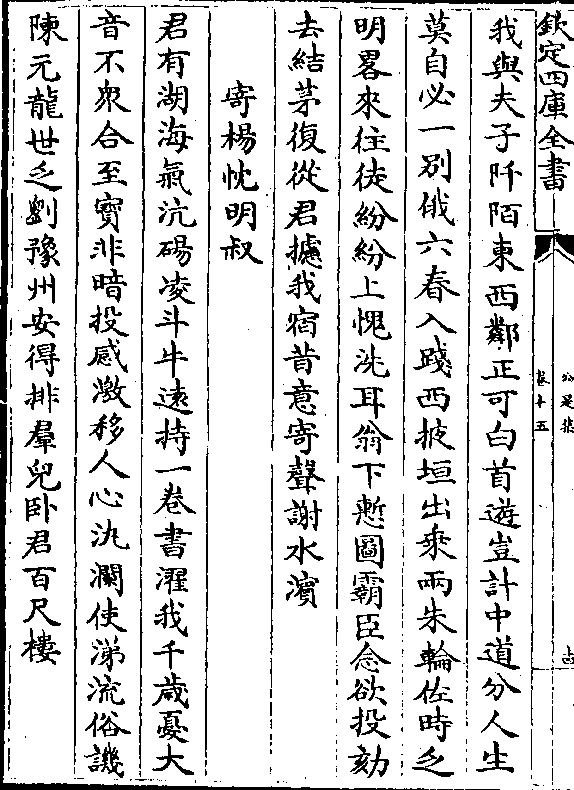 欽定四庫全書
卷十五
我與夫子阡陌東西鄰正可白首遊豈計中道分人生
莫自必一別俄六春入踐西掖垣出乘兩朱輪佐時乏
明畧來往徒紛紛上愧洗耳翁下慙圖霸臣念欲投劾
去結茅復從君攄我宿昔意寄聲謝水濱
寄楊忱明叔
君有湖海氣沆碭凌斗牛遠持一卷書濯我千歲憂大
音不衆合至寳非暗投感激移人心氿瀾使涕流俗譏
陳元龍世乏劉豫州安得排羣兒卧君百尺樓